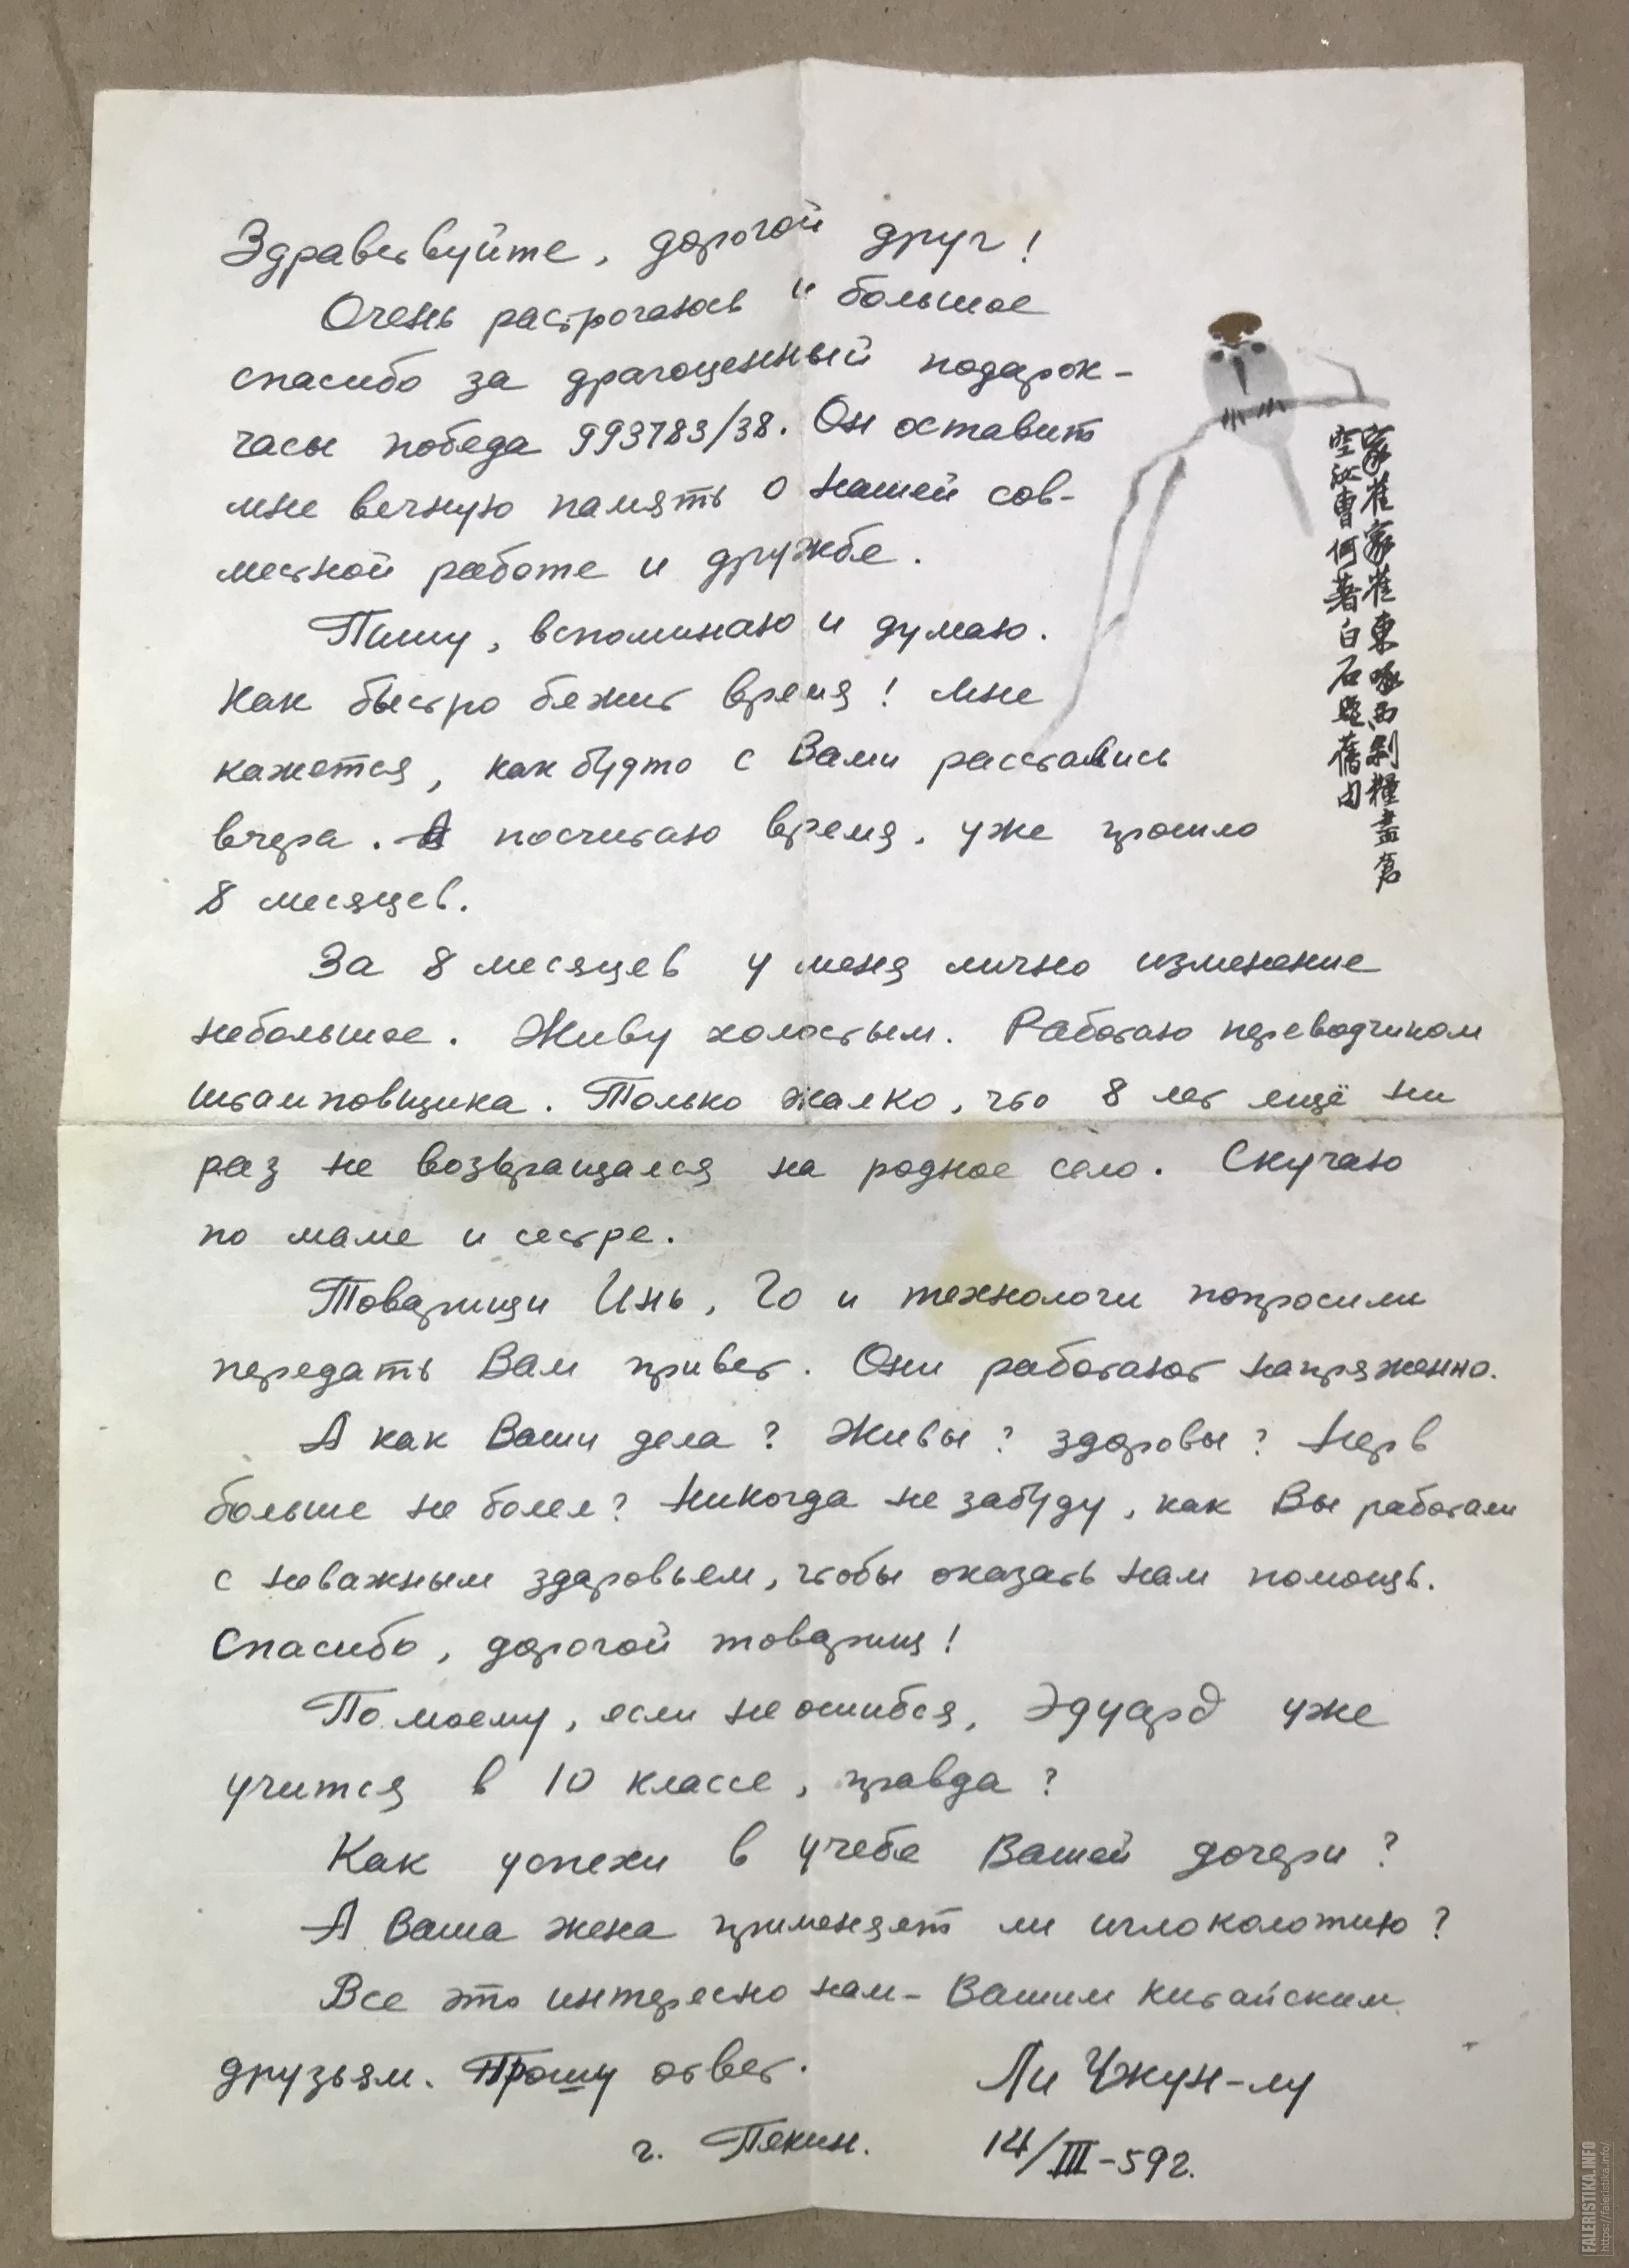 Здравствуйте, дорогой друг!
Очень растрогаюсь и большое
спасибо за драгоценный подарок-
часы победа 993783/38. Он оставит
мне вечную память о нашей сов-
местной работе и дружбе.
Пишу, вспоминаю и думаю.
Как быстро бежит время! Мне
кажется, как будто с Вами расстались
вчера. А посчитаю время, уже прошло
8 месяцев.
За 8 месяцев у меня лично изменение
небольшое. Живу холостым. Работаю переводчиком
штамповщика. Только жалко, что 8 лет ещё ни
раз не возвращался на родное село. Скучаю
по маме и сестре.
Товарищи Инь, Го и технологи попросили
передать Вам привет. Они работают напряженно.
А как Ваши дела? Живы? здоровы? Нерв
больше не болел? Никогда не забуду, как Вы работали
с неважным здоровьем, чтобы оказать нам помощь.
Спасибо, дорогой товарищ!
По моему, если не ошибся, Эдуард уже
учится в 10 классе, правда?
Как успехи в учебе Вашей дочери?
А Ваша жена применяет ли иглоколотию?
Все это интересно нам - Вашим китайским
друзьям. Прошу ответ.
Ли Чжун-лу
г. Пекин.
14/III-59г.
家雀家雀東啄西剝糧盡倉
空汝曹何著白石題舊句
FALERISTIKA.INFO
https://faleristika.info/